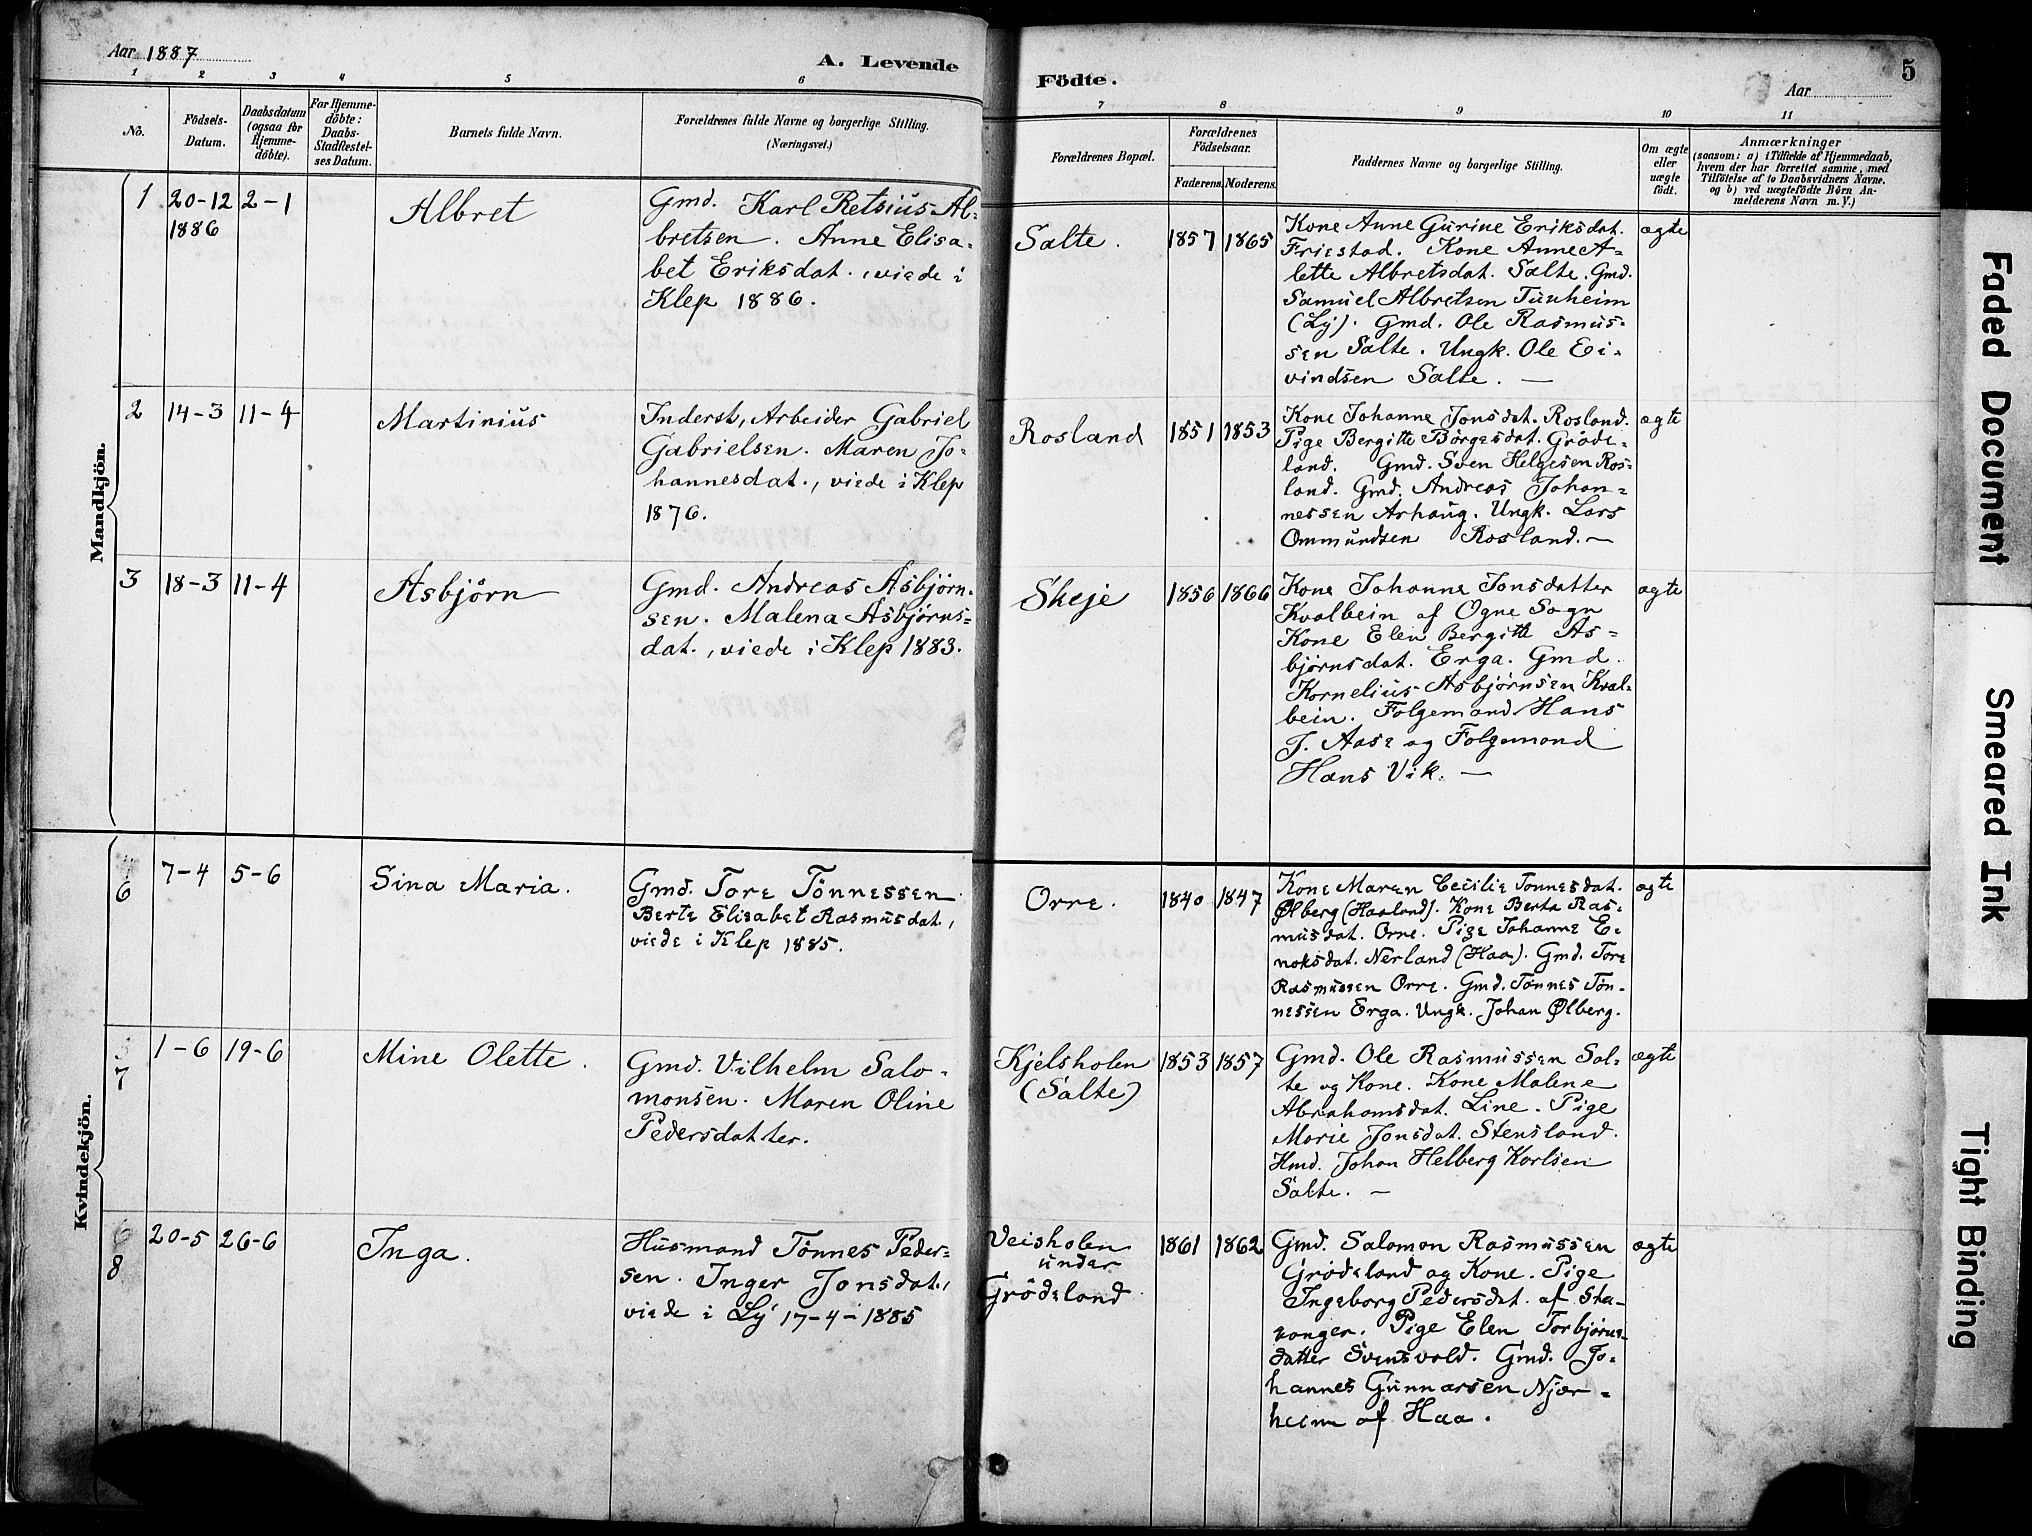 Aar 1887
A. Levende
Födte.
Aar
5
1 2 3 4 5 6 7 8 9 10 11
No.
Födsels-
Datum.
Daabsdatum
(ogsaa for
Hjemme-
döbte).
For Hjemme-
döbte:
Daabs-
Stadfæstel-
ses Datum.
Barnets fulde Navn.
Forældrenes fulde Navne og borgerlige Stilling.
(Næringsvei.)
Forældrenes Bopæl.
Forældrenes
Födselsaar.
Faderens. Moderens.
Faddernes Navne og borgerlige Stilling.
Om ægte
eller
uægte
födt.
Anmærkninger
(saasom: a) i Tilfælde af Hjemmedaab,
hvem der har forrettet samme, med
Tilföielse af to Daabsvidners Navne.
og b) ved uægtefödte Börn An-
melderens Navn m. V.)
Mandkjön.
1
20-12
1886
2-1
Albret
Gmd. Karl Retsius Al-
bretsen. Anne Elisa-
bet Eriksdat. viede i
Klep 1886.
Salte.
1857 1865
Kone Anne Gurine Eriksdat.
Friestad. Kone Anne A-
lette Albretsdat. Salte. Gmd.
Samuel Albretsen Tunheim
(Ly). Gmd. Ole Rasmus-
sen Salte. Ungk. Ole Ei-
vindsen Salte. —
ægte
2
14-3 11-4
Martinius
Inderst, Arbeider Gabriel
Gabrielsen. Maren Jo-
hannesdat., viede i Klep
1876.
Rosland
1851 1853
Kone Johanne Jonsdat. Rosland.
Pige Bergitte Börgesdat. Gröde-
land. Gmd. Sven Helgesen Ros-
land. Gmd. Andreas Johan-
nessen Arhaug. Ungk. Lars
Ommundsen Rosland. —
ægte
3
18-3 11-4
Asbjørn
Gmd. Andreas Asbjørn-
sen. Malena Asbjørns-
dat., viede i Klep 1883.
Skeje
1856 1866
Kone Johanne Jonsdatter
Kvalbein af Ogne Sogn
Kone Elen Bergitte As-
bjørnsdat. Erga. Gmd.
Kornelius Asbjørnsen Kval-
bein. Folgemand Hans
J. Aase og Folgemand
Hans Vik. —
ægte
Kvindekjön.
6
7-4 5-6
Sina Maria.
Gmd. Tore Tönnessen
Berte Elisabet Rasmusdat.,
viede i Klep 1885.
Orre.
1840 1847
Kone Maren Cecilie Tonnesdat.
Ølberg (Haaland). Kone Berta Ras-
musdat. Orre. Pige Johanne E-
noksdat. Nerland (Haa). Gmd. Tore
Rasmussen Orre. Gmd. Tönnes Tön-
nessen Erga. Ungk. Johan Ølberg.
ægte
7
1-6 19-6
Mine Olette.
Gmd. Vilhelm Salo-
monsen. Maren Oline
Pedersdatter.
Kjelsholen
(Salte)
1853 1857
Gmd. Ole Rasmussen Sal-
te og Kone. Kone Malene
Abrahamsdat. Line. Pige
Marie Jonsdat. Stensland.
Hmd. Johan Helberg Karlsen
Salte. —
ægte
6
8
20-5 26-6
Inga.
Husmand Tønnes Peder-
sen. Inger Jonsdat.,
viede i Ly 17-4-1885
Veisholen
under
Grödeland
1861 1862
Gmd. Salomon Rasmussen
Grødeland og Kone. Pige
Ingeborg Pedersdat. af Sta-
vanger. Pige Elen Torbjørns-
datter Svensvold. Gmd. Jo-
hannes Gunnarsen Njær-
heim af Haa.
ægte
Faded Document
Smeared Ink
Tight Binding